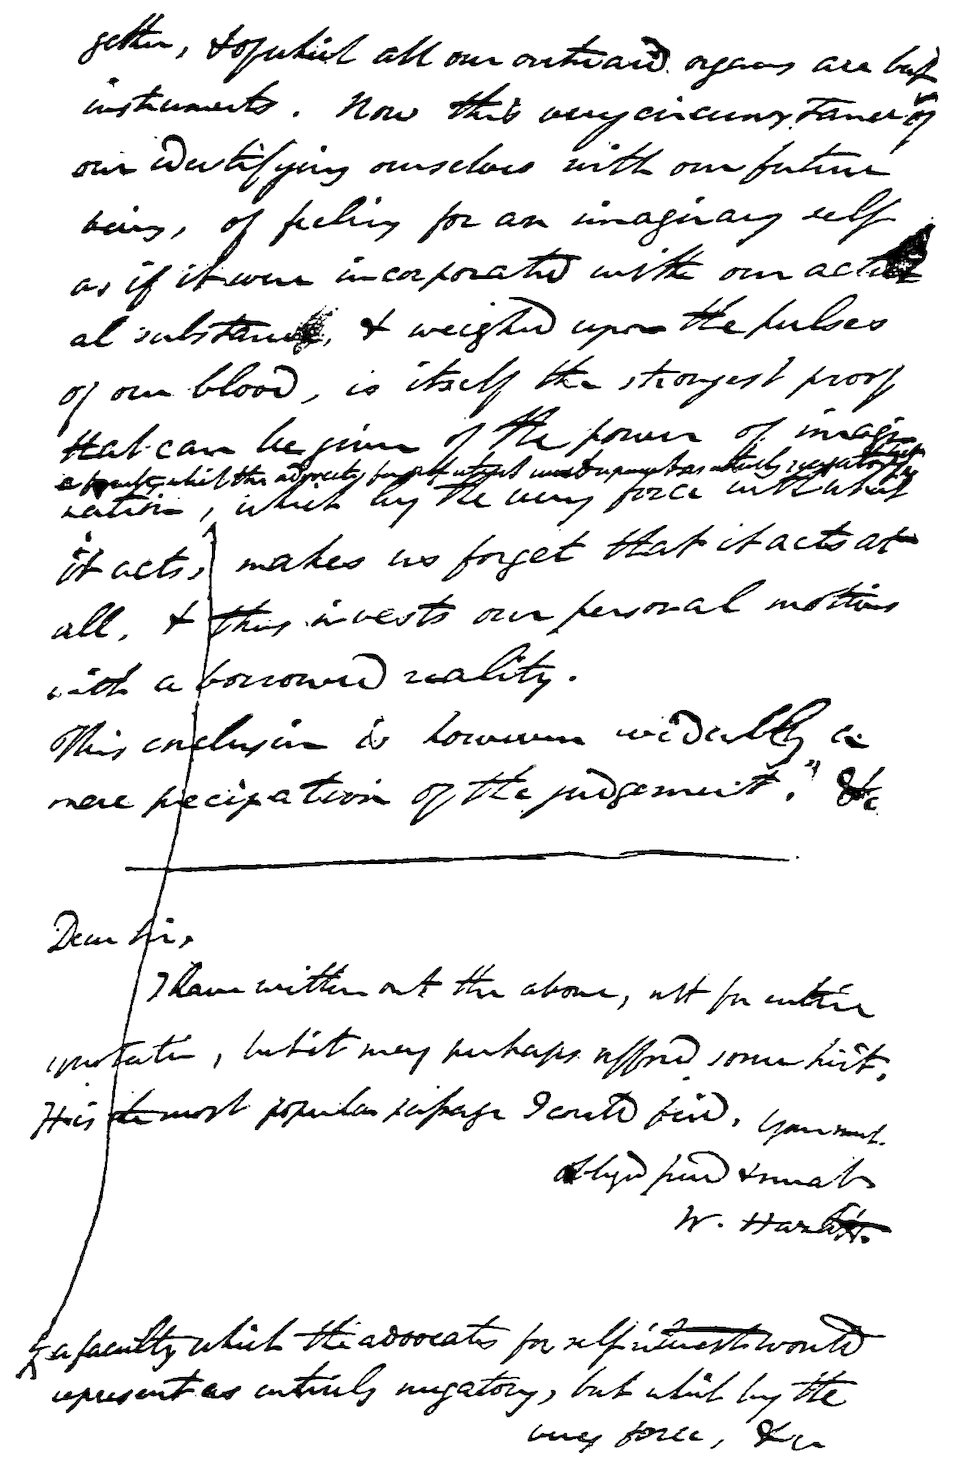 gether, & of which all our outward organs are but
instruments. Now this very circumstance of
our identifying ourselves with our future
being, of feeling for an imaginary self
as if it were incorporated with our actu
al substance, & weighed upon the pulses
of our blood, is itself the strongest proof
that can be given of the power of imagi
a faculty which the advocates for self interest would represent as entirely nugatory but
nation, which by the very force with which
it acts, makes us forget that it acts at
all, & thus invests our personal motives
with a borrowed reality.
This conclusion is however evidently a
mere precipation of the judgement." &c
Dear Sir,
I have written out the above, not for entire
quotation, but it may perhaps afford some hint.
It is the most popular passage I could find. Your much
oblig'd friend & servant
W. Hazlitt.
a faculty which the advocates for self interest would
represent as entirely nugatory, but which by the
very force, &c